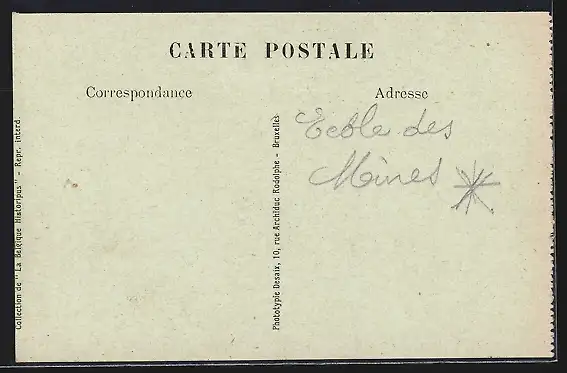 CARTE POSTALE
Correspondance
Adresse
Ecole des
Mines
Collection de "La Belgique Historique" - Repr. interd.
Phototypie Desaix, 10, rue Archiduc Rodolphe - Bruxelles